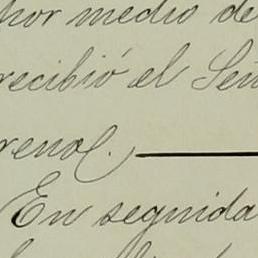 por medio de
recibió el Señ
renal.
En seguida